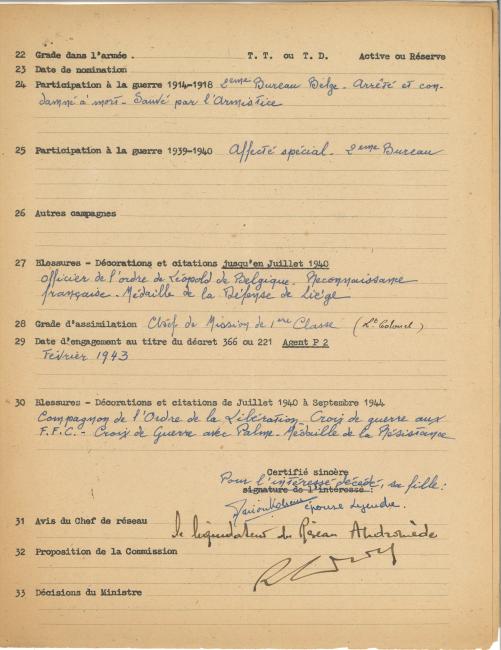 22 Grade dans l'armée . T. T. ou T. D. Active ou Réserve
23 Date de nomination
24 Participation à la guerre 1914-1918 2eme Bureau Belge - Arrêté et con-
damné à mort - Sauvé par l'Armistice
25 Participation à la guerre 1939-1940 Affecté spécial - 2eme Bureau
26 Autres campagnes
27 Blessures - Décorations et citations jusqu'en Juillet 1940
Officier de l'ordre de Léopold de Belgique. Reconnaissance
française - Médaille de la Défense de Liège
28 Grade d'assimilation Chef de Mission de 1ere Classe (Lt Colonel)
29 Date d'engagement au titre du décret 366 ou 221 Agent P 2
Février 1943
30 Blessures - Décorations et citations de Juillet 1940 à Septembre 1944
Compagnon de l'Ordre de la Libération Croix de guerre aux
F.F.C. - Croix de Guerre avec Palme - Médaille de la Résistance
Certifié sincère
Pour l'intéressé décédé, sa fille:
signature de l'intéressé :
épouse
31 Avis du Chef de réseau le liquidateur du Réseau Andromède
32 Proposition de la Commission
33 Décisions du Ministre